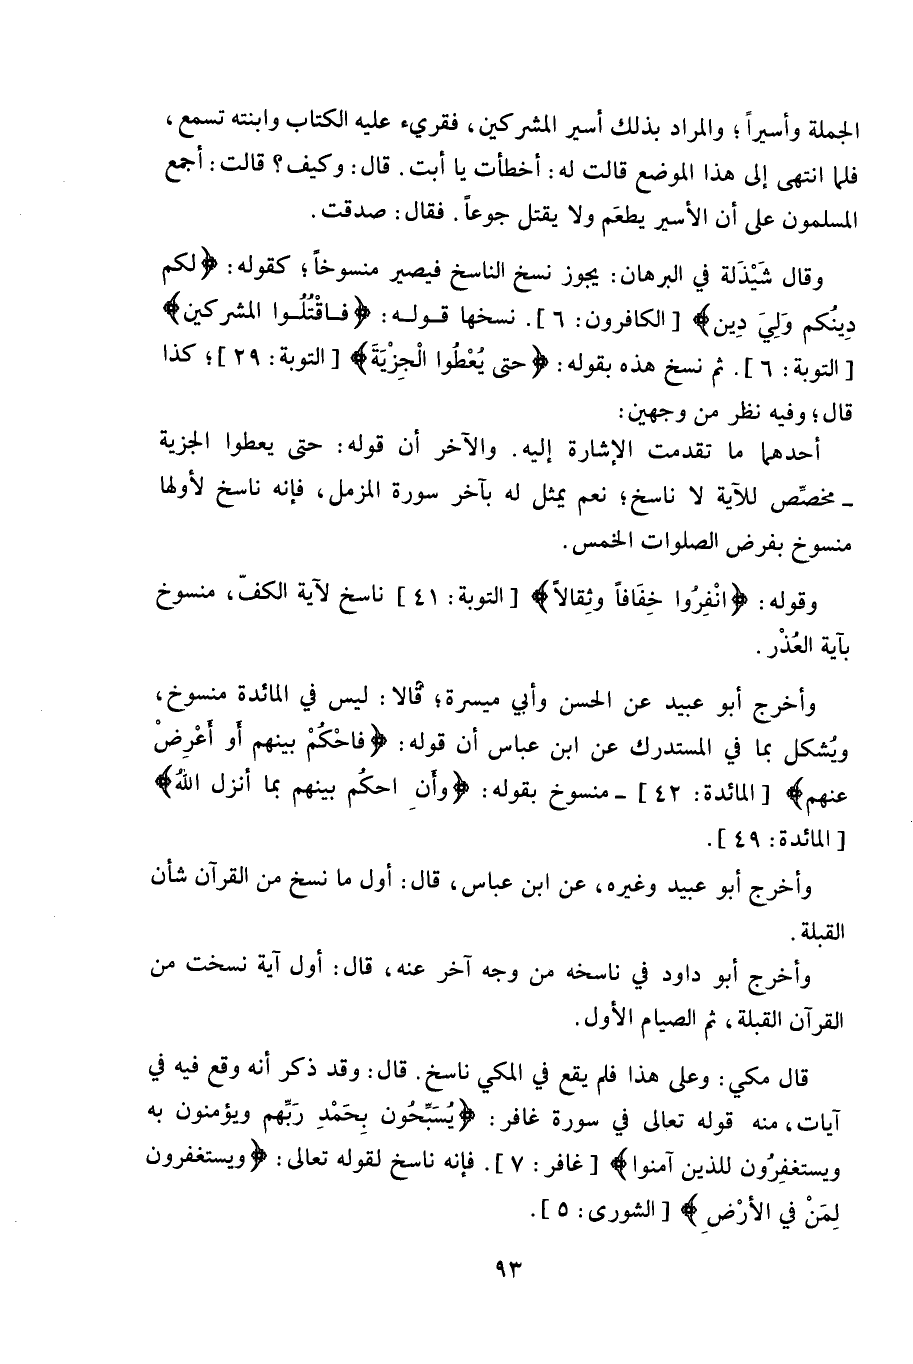 الجملة وأسيراً؛ والمراد بذلك أسير المشركين، فقريء عليه الكتاب وابنته تسمع،
فلما انتهى إلى هذا الموضع قالت له: أخطأت يا أبت. قال: وكيف؟ قالت: أجمع
المسلمون على أن الأسير يطعَم ولا يقتل جوعاً. فقال: صدقت.
وقال شَيْذَلة في البرهان: يجوز نسخ الناسخ فيصير منسوخاً؛ كقوله: ﴿لكم
دِينُكم وَلِيَ دِين﴾ [الكافرون: ٦]. نسخها قوله: ﴿فاقْتُلُوا المشركين﴾
[التوبة: ٦]. ثم نسخ هذه بقوله: ﴿حتى يُعْطُوا الْجِزْيَةَ﴾ [التوبة: ٢٩]؛ كذا
قال؛ وفيه نظر من وجهين:
أحدهما ما تقدمت الإشارة إليه. والآخر أن قوله: حتى يعطوا الجزية
ـ مخصِّص للآية لا ناسخ؛ نعم يمثل له بآخر سورة المزمل، فإنه ناسخ لأولها
منسوخ بفرض الصلوات الخمس.
وقوله: ﴿انْفِرُوا خِفَافاً وثِقالاً﴾ [التوبة: ٤١] ناسخ لآية الكفّ، منسوخ
بآية العُذْر.
وأخرج أبو عبيد عن الحسن وأبي ميسرة؛ قالا: ليس في المائدة منسوخ،
ويُشكل بما في المستدرك عن ابن عباس أن قوله: ﴿فاحْكُمْ بينهم أَو أَعْرِضْ
عنهم﴾ [المائدة: ٤٢] ـ منسوخ بقوله: ﴿وأَنِ احكُم بينهم بما أنزل اللهُ﴾
[المائدة: ٤٩].
وأخرج أبو عبيد وغيره، عن ابن عباس، قال: أول ما نسخ من القرآن شأن
القبلة.
وأخرج أبو داود في ناسخه من وجه آخر عنه، قال: أول آية نسخت من
القرآن القبلة، ثم الصيام الأول.
قال مكي: وعلى هذا فلم يقع في المكي ناسخ. قال: وقد ذكر أنه وقع فيه في
آيات، منه قوله تعالى في سورة غافر: ﴿يُسَبِّحُون بِحَمْدِ رَبِّهم ويؤمنون به
ويستغفِرُون للذين آمنوا﴾ [غافر: ٧]. فإنه ناسخ لقوله تعالى: ﴿ويستغفرون
لِمَنْ في الأرْضِ﴾ [الشورى: ٥].
٩٣